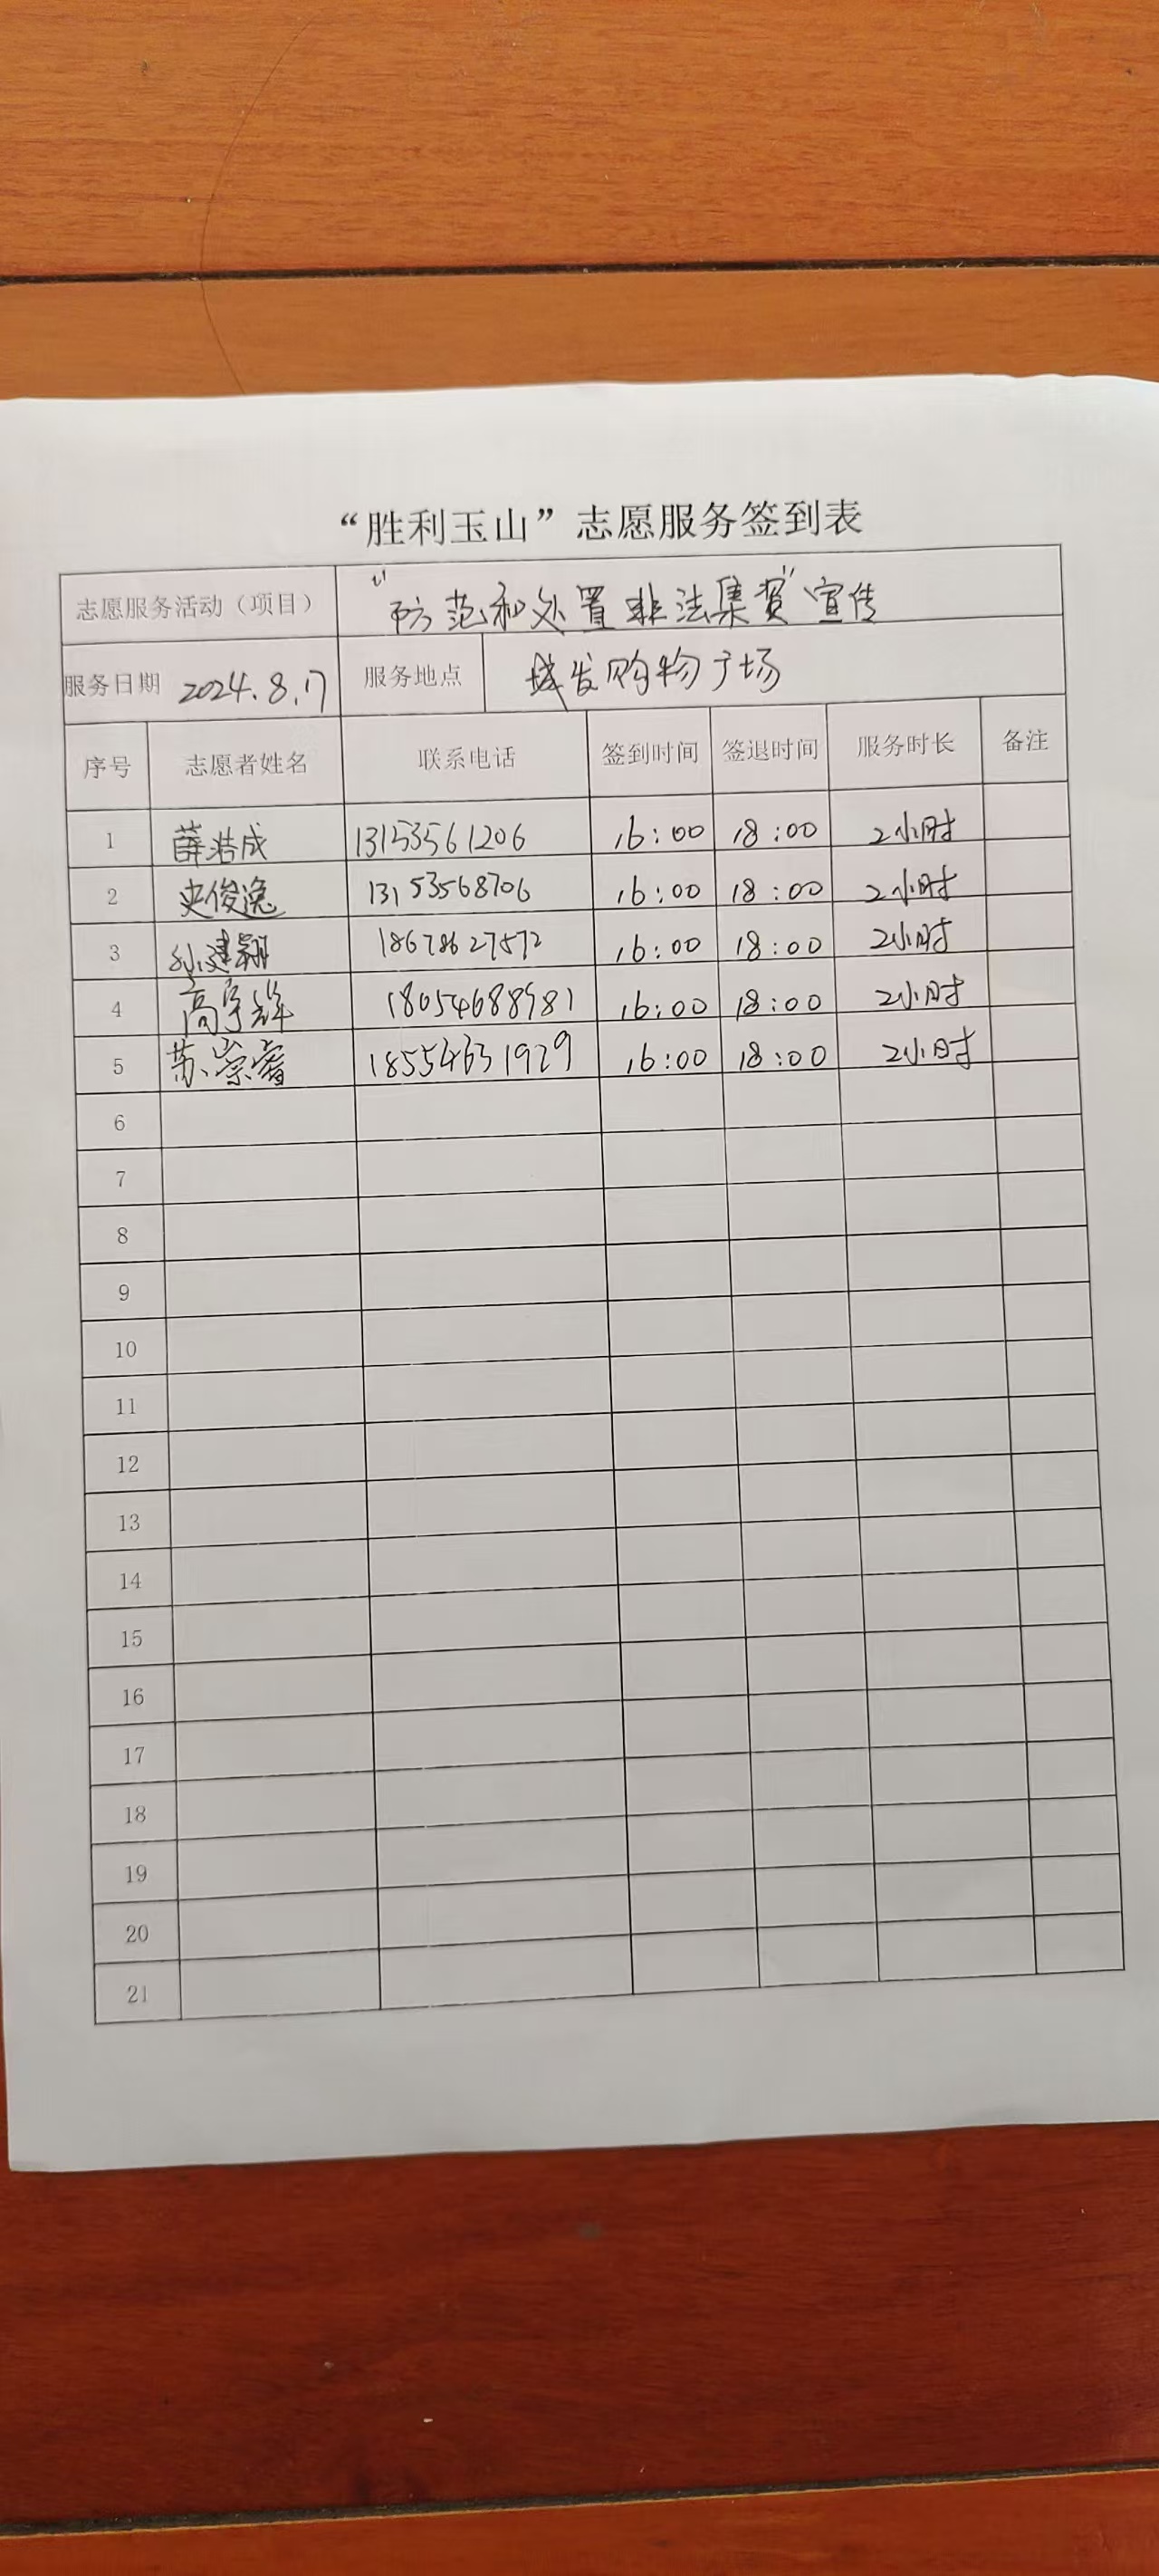 “胜利玉山”志愿服务签到表
志愿服务活动（项目） “防范和处置非法集资”宣传
服务日期 2024.8.17 服务地点 城发购物广场
序号 志愿者姓名 联系电话 签到时间 签退时间 服务时长 备注
1 薛浩成 13153561206 16:00 18:00 2小时
2 史俊逸 13153568706 16:00 18:00 2小时
3 孙建翮 18678627572 16:00 18:00 2小时
4 高宇辉 18054688981 16:00 18:00 2小时
5 苏崇睿 18554631929 16:00 18:00 2小时
6
7
8
9
10
11
12
13
14
15
16
17
18
19
20
21